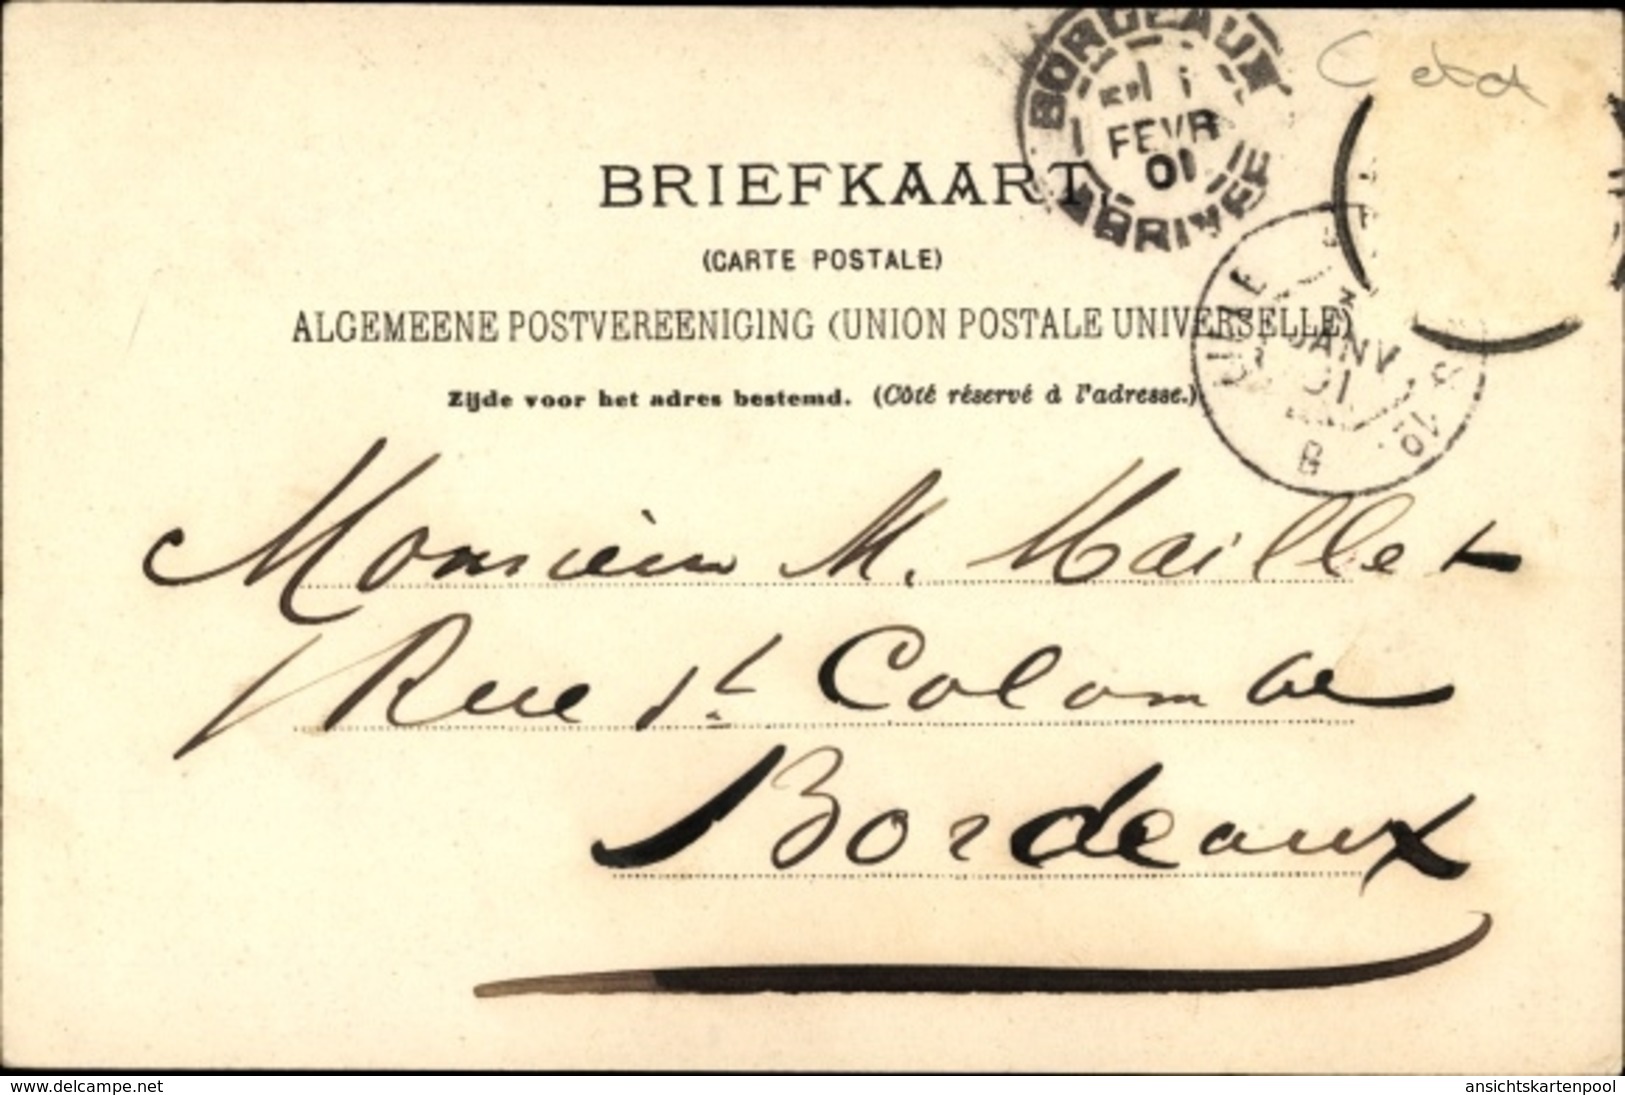 BORDEAUX
FEVR
01
ARRIVEE
BRIEFKAART
(CARTE POSTALE)
ALGEMEENE POSTVEREENIGING (UNION POSTALE UNIVERSELLE)
Zijde voor het adres bestemd. (Côté réservé à l'adresse.)
JANV
01
B
Monsieur M. Maillet
Rue St Colombe
Bordeaux
www.delcampe.net
ansichtskartenpool